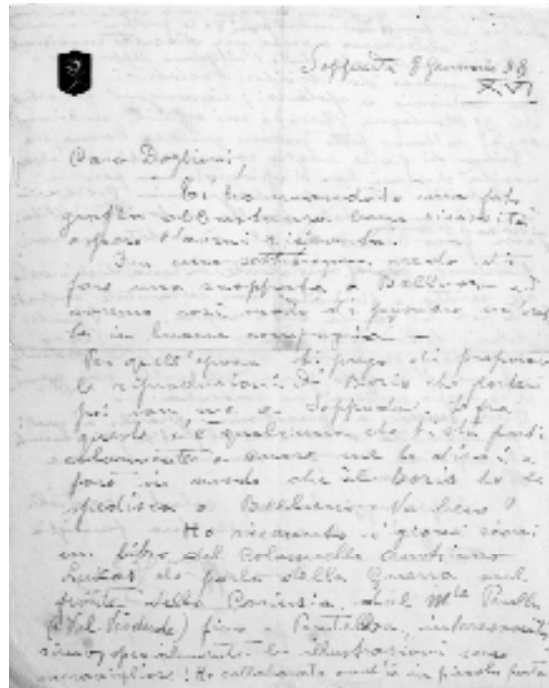 Sappada 8 Gennaio 38
XVI
Caro Doglioni,
Ti ho mandato una foto
grafia abbastanza bene riuscita
spero l'avrai ricevuta.
Fra una settimana credo di
fare una scappata a Belluno ed
avremo così modo di passare un'ora
in buona compagnia —
Per quell'epoca ti prego di preparare
le riproduzioni di Boris che porterò
poi con me a Sappada. Se fra
queste c'è qualcuna che ti sta parti
colarmente a cuore me lo dirai e
farò in modo che Boris la
spedisca a Belluno. Va bene?
Ho ricevuto i giorni scorsi
un libro del colonnello austriaco
Lukas che parla della Guerra sul
fronte della Carinzia, dal Mte Peralba
(Val Visdende) fino a, interessante
specialmente le illustrazioni sono
meravigliose! Ho collaborato anch'io in piccola parte